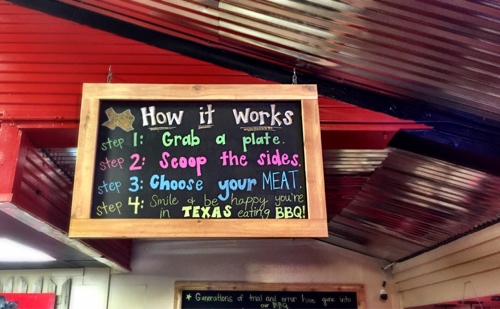 How it Works
step 1: Grab a plate.
step 2: Scoop the sides.
step 3: Choose your MEAT.
step 4: Smile & be happy you're
in TEXAS eating BBQ!
★ Generations of trial and error have gone into
our BBQ